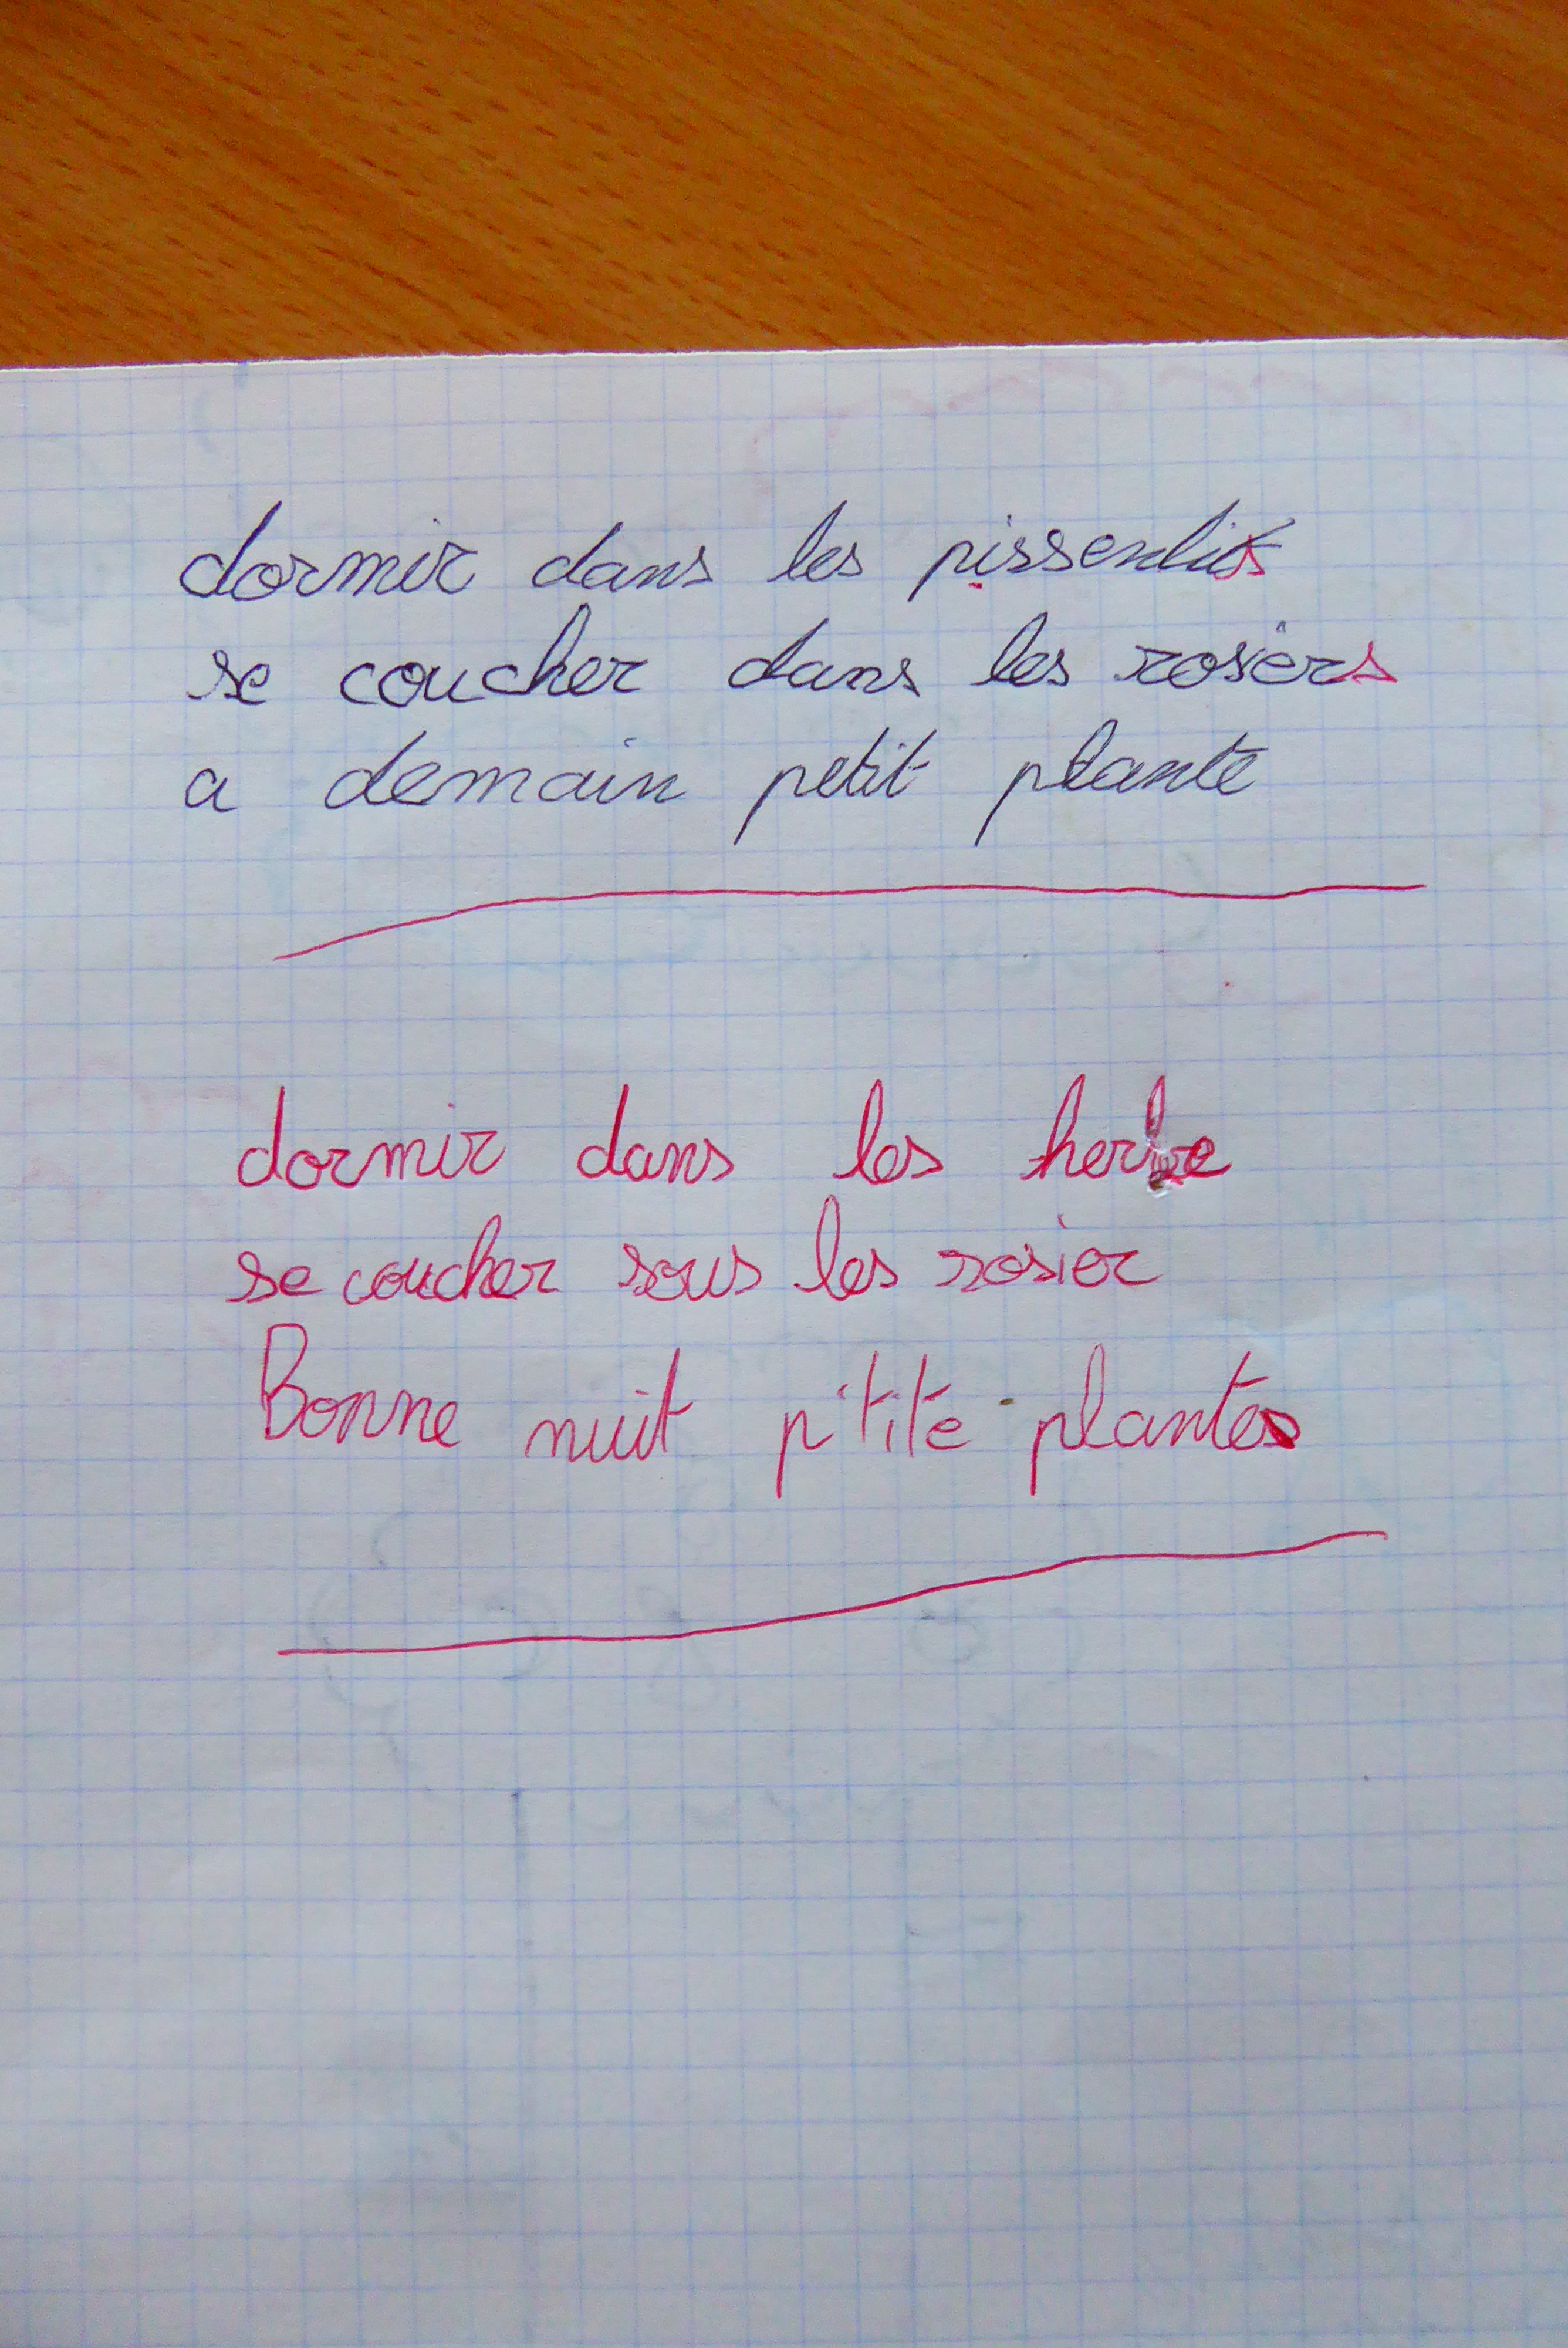 dormir dans les pissenlits
se coucher dans les rosiers
a demain petit plante
dormir dans les herbe
se coucher sous les rosier
Bonne nuit p'tite plantes